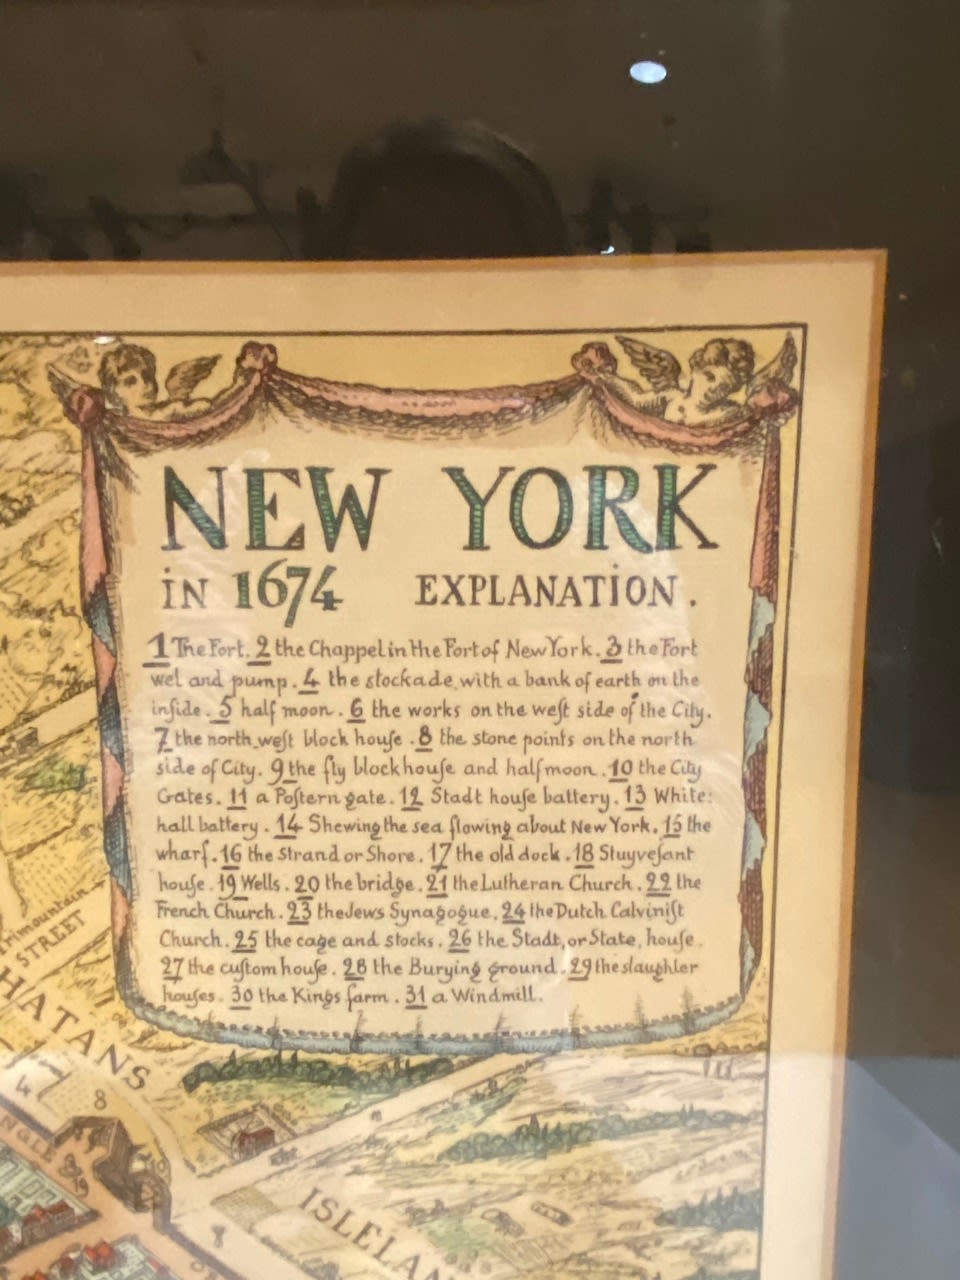 NEW YORK
iN 1674 EXPLANATiON.
1 The Fort. 2 the Chappel in the Fort of New York. 3 the Fort
wel and pump. 4 the stockade, with a bank of earth on the
inſide. 5 half moon. 6 the works on the weſt side of the City.
7 the north weſt block houſe. 8 the stone points on the north
side of City. 9 the fly blockhouſe and halfmoon. 10 the City
Gates. 11 a Poſtern gate. 12 Stadt houſe battery. 13 White:
hall battery. 14 Shewing the sea flowing about New York. 15 the
wharf. 16 the Strand or Shore. 17 the old dock. 18 Stuyveſant
houſe. 19 Wells. 20 the bridge. 21 the Lutheran Church. 22 the
French Church. 23 the Jews Synagogue. 24 the Dutch Calviniſt
Church. 25 the cage and stocks. 26 the Stadt, or State, houſe.
27 the cuſtom houſe. 28 the Burying ground. 29 the slaughter
houſes. 30 the Kings farm. 31 a Windmill.
STREET
HATANS
8
ISLELAN